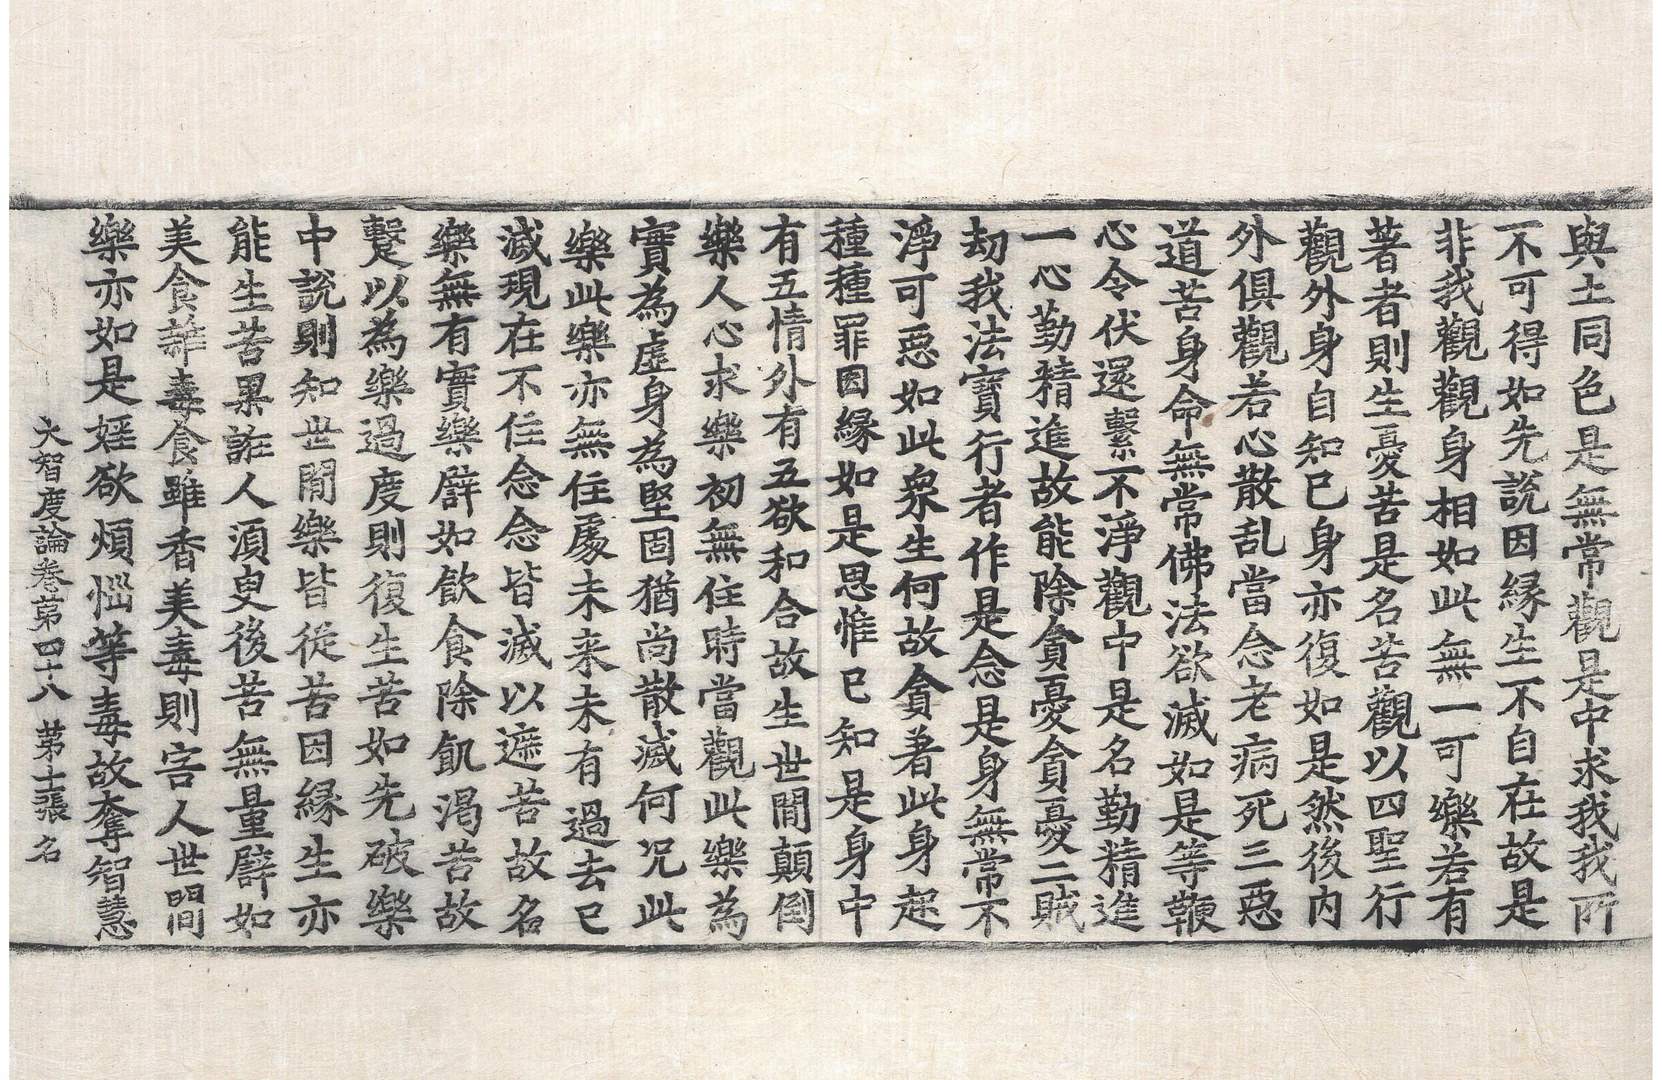 與土同色是無常觀是中求我我所
不可得如先說因緣生不自在故是
非我觀觀身相如此無一可樂若有
著者則生憂苦是名苦觀以四聖行
觀外身自知已身亦復如是然後內
外俱觀若心散乱當念老病死三惡
道苦身命無常佛法欲滅如是等鞭
心令伏還繫不淨觀中是名勤精進
一心勤精進故能除貪憂貪憂二賊
劫我法寶行者作是念是身無常不
淨可惡如此衆生何故貪著此身起
種種罪因緣如是思惟已知是身中
有五情外有五欲和合故生世閒顛倒
樂人心求樂初無住時當觀此樂為
實為虛身為堅固猶尚散滅何况此
樂此樂亦無住處未来未有過去已
滅現在不住念念皆滅以遮苦故名
樂無有實樂譬如飲食除飢渴苦故
蹔以為樂過度則復生苦如先破樂
中說則知世閒樂皆從苦因緣生亦
能生苦果誑人須臾後苦無量譬如
美食雜毒食雖香美毒則害人世間
樂亦如是婬欲煩惱等毒故奪智慧
大智度論卷第四十八 第十二張 名